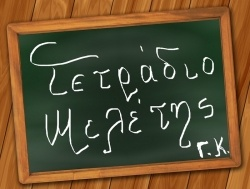 Τετράδιο
Μελέτης
Γ.Κ.